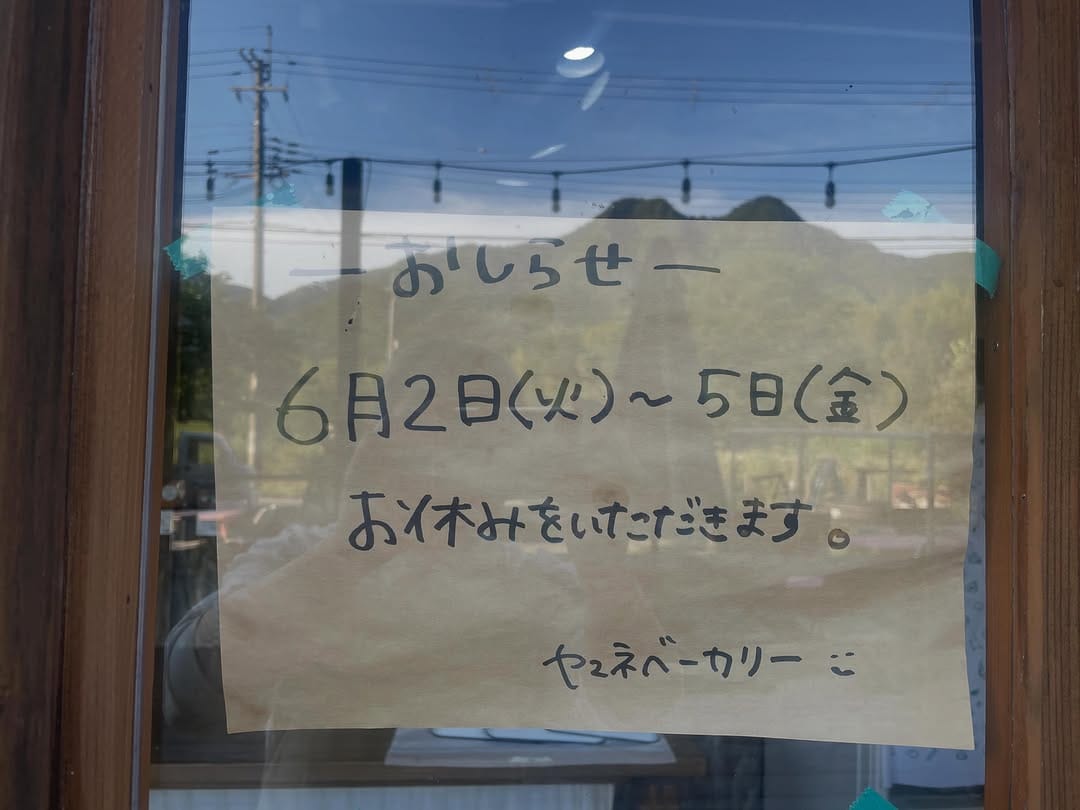 ーおしらせー
6月2日(火)～5日(金)
お休みをいただきます。
ヤマネベーカリー